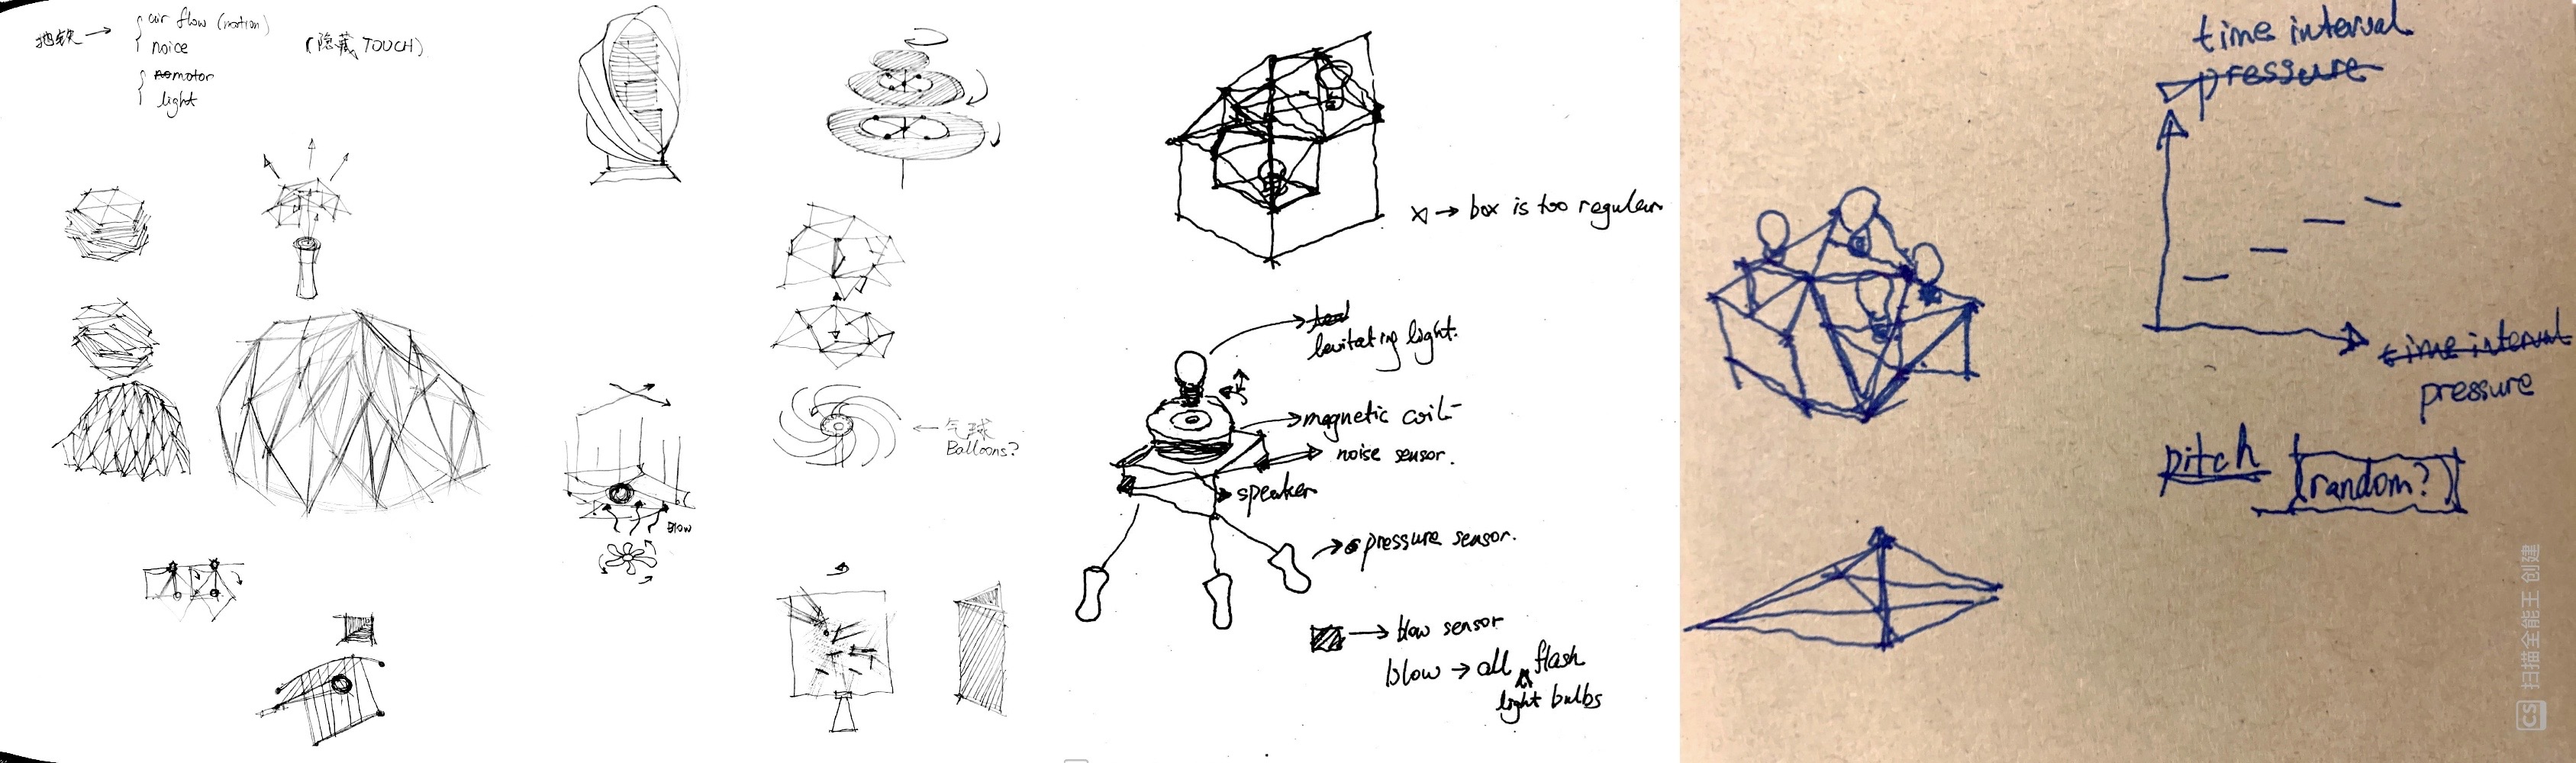 地铁 → air flow (motion)
noice
motor
light
(隐藏 TOUCH)
Blow
← 气球
Balloons?
x → box is too regular
levitating light.
magnetic coil
noise sensor.
speaker
pressure sensor.
blow sensor
blow → all flash
light bulbs
time interval
pressure
time interval
pressure
pitch (random?)
CS 扫描全能王 创建